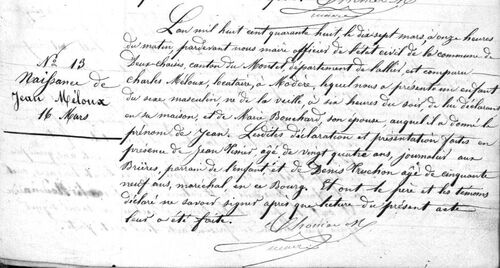 Nº 13
Naissance de
Jean Méloux
16 Mars
L'an mil huit cent quarante huit, le dix sept mars, à onze heures
du matin, pardevant nous maire officier de l'état civil de la commune de
Deux-chaises, canton du Montet département de l'allier, est comparu
Charles Méloux, locataire, à Modère, lequel nous a présenté un enfant
du sexe masculin, né de la veille, à six heures du soir, de lui déclarant
en sa maison, et de Marie Bouchard, son épouse, auquel il a donné le
prénom de Jean. Lesdites déclaration et présentation faites en
présence de Jean agé de vingt quatre ans, journalier aux
Brières, parrain de l'enfant, et de Denis Truchon âgé de cinquante
neuf ans, maréchal, en ce Bourg. Et ont le père et les témoins
déclaré ne savoir signer après que lecture du présent acte
leur a été faite.
maire